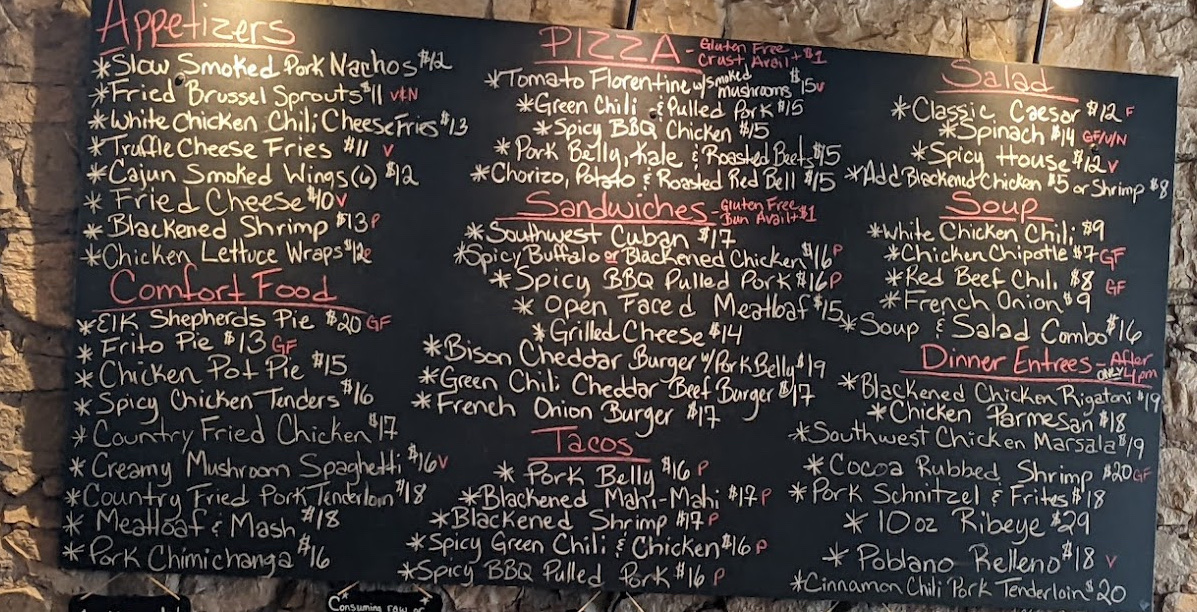 Appetizers
*Slow Smoked Pork Nachos $12
*Fried Brussel Sprouts $11 V&N
*White Chicken Chili Cheese Fries $13
*Truffle Cheese Fries $11 V
*Cajun Smoked Wings (6) $12
*Fried Cheese $10 V
*Blackened Shrimp $13 P
*Chicken Lettuce Wraps $12
Comfort Food
*Elk Shepherds Pie $20 GF
*Frito Pie $13 GF
*Chicken Pot Pie $15
*Spicy Chicken Tenders $16
*Country Fried Chicken $17
*Creamy Mushroom Spaghetti $16 V
*Country Fried Pork Tenderloin $18
*Meatloaf & Mash $18
*Pork Chimichanga $16
PIZZA - Gluten Free
Crust Avail + $1
*Tomato Florentine w/ smoked mushrooms $15 V
*Green Chili & Pulled Pork $15
*Spicy BBQ Chicken $15
*Pork Belly, Kale & Roasted Beets $15
*Chorizo, Potato & Roasted Red Bell $15
Sandwiches - Gluten Free
Bun Avail + $1
*Southwest Cuban $17
*Spicy Buffalo or Blackened Chicken $16 P
*Spicy BBQ Pulled Pork $16 P
*Open Faced Meatloaf $15
*Grilled Cheese $14
*Bison Cheddar Burger w/ Pork Belly $19
*Green Chili Cheddar Beef Burger $17
*French Onion Burger $17
Tacos
*Pork Belly $16 P
*Blackened Mahi-Mahi $17 P
*Blackened Shrimp $17 P
*Spicy Green Chili & Chicken $16 P
*Spicy BBQ Pulled Pork $16 P
Salad
*Classic Caesar $12 F
*Spinach $14 GF/V/N
*Spicy House $12 V
*Add Blackened Chicken $5 or Shrimp $8
Soup
*White Chicken Chili $9
*Chicken Chipotle $7 GF
*Red Beef Chili $8 GF
*French Onion $9
*Soup & Salad Combo $16
Dinner Entrees - After
ONLY 4pm
*Blackened Chicken Rigatoni $19
*Chicken Parmesan $18
*Southwest Chicken Marsala $19
*Cocoa Rubbed Shrimp $20 GF
*Pork Schnitzel & Frites $18
*10oz Ribeye $29
*Poblano Relleno $18 V
*Cinnamon Chili Pork Tenderloin $20
*Consuming raw or